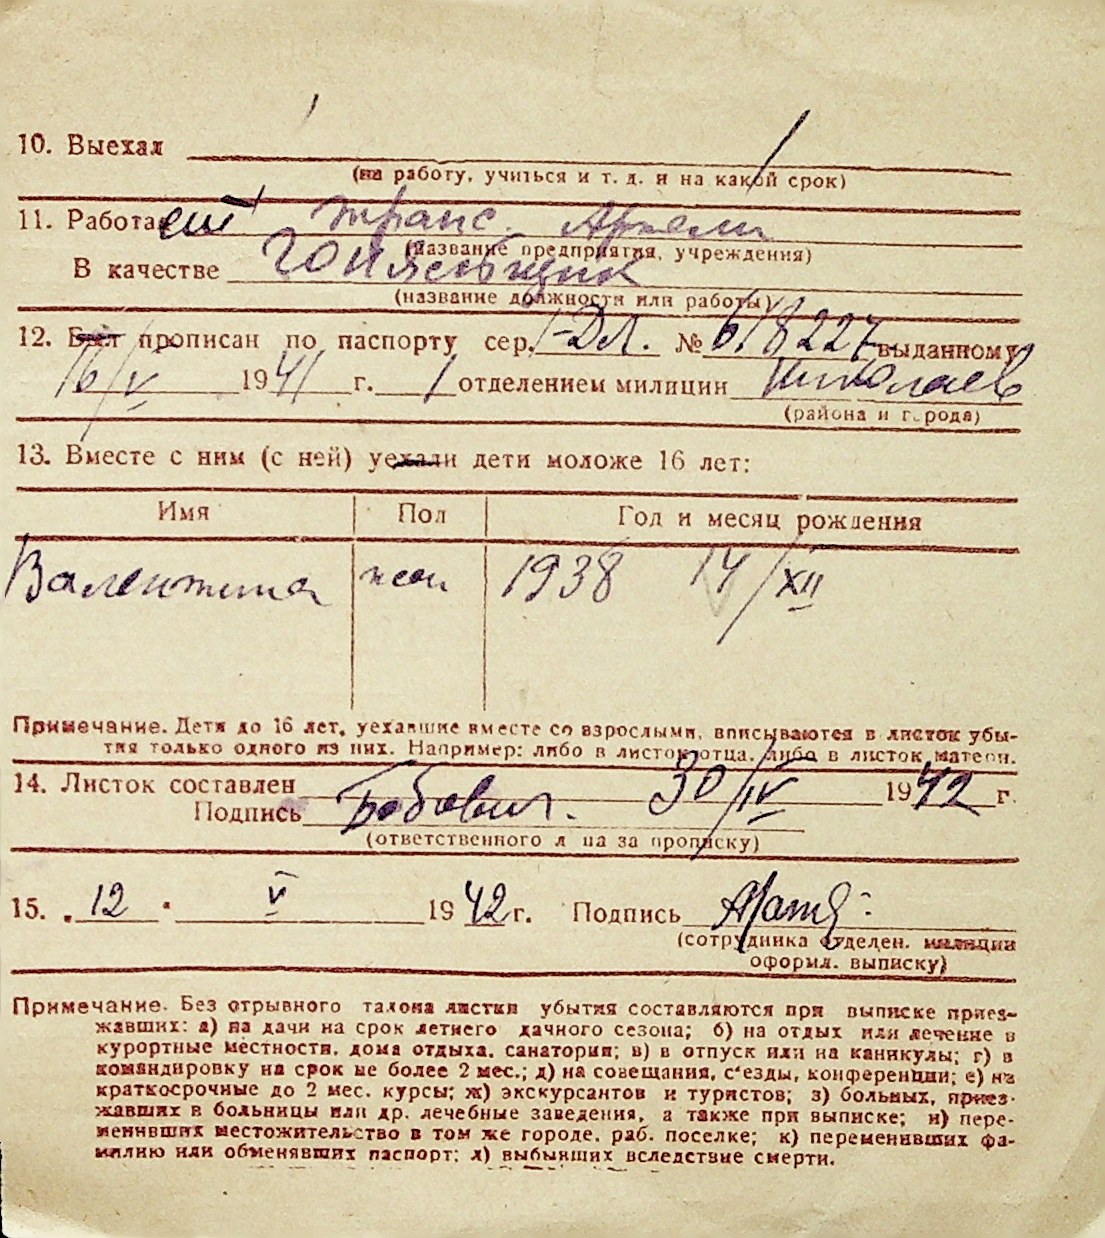 10. Выехал
(на работу, учиться и т. д. и на какой срок)
11. Работает транс. Артели
(название предприятия, учреждения)
В качестве
(название должности или работы)
12. Был прописан по паспорту сер. I-ДЛ. № 618227 выданному
16/V 1941 г. 1 отделением милиции Николаев
(района и города)
13. Вместе с ним (с ней) уехали дети моложе 16 лет:
Имя Пол Год и месяц рождения
Валентина жен 1938 14/XII
Примечание. Дети до 16 лет, уехавшие вместе со взрослыми, вписываются в листок убы-
тия только одного из них. Например: либо в листок отца, либо в листок матери.
14. Листок составлен 30/IV 1942 г.
Подпись
(ответственного л ца за прописку)
15. „12 " V 1942 г. Подпись
(сотрудника отделен. милиции
оформл. выписку)
Примечание. Без отрывного талона листки убытия составляются при выписке приез-
жавших: а) на дачи на срок летнего дачного сезона; б) на отдых или лечение в
курортные местности, дома отдыха, санатории; в) в отпуск или на каникулы; г) в
командировку на срок не более 2 мес.; д) на совещания, с'езды, конференции; е) на
краткосрочные до 2 мес. курсы; ж) экскурсантов и туристов; з) больных, приез-
жавших в больницы или др. лечебные заведения, а также при выписке; и) пере-
менивших местожительство в том же городе, раб. поселке; к) переменивших фа-
милию или обменявших паспорт; л) выбывших вследствие смерти.